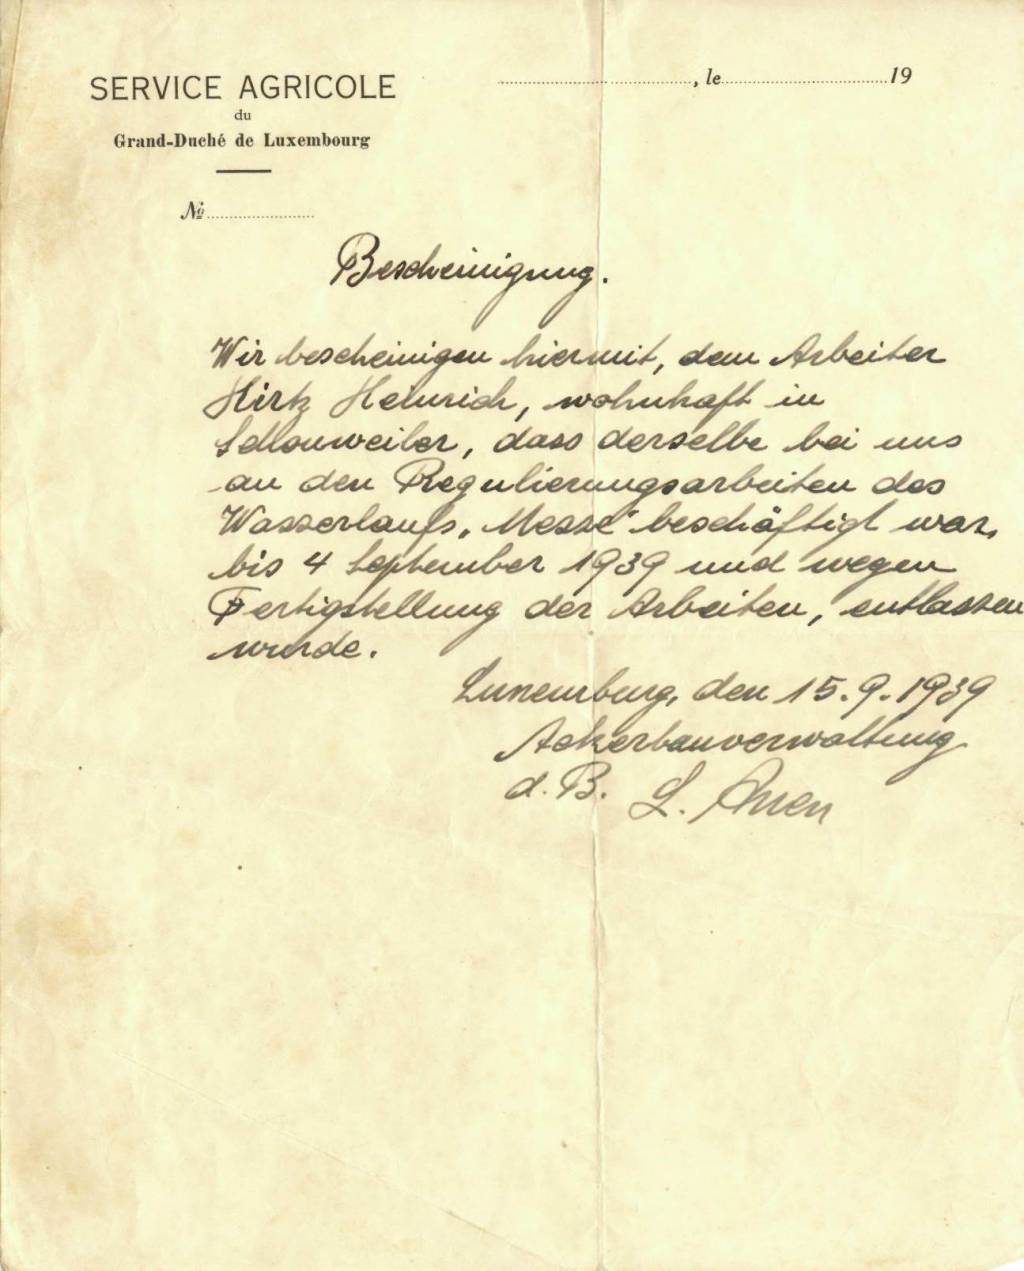 SERVICE AGRICOLE
du
Grand-Duché de Luxembourg
, le 19
№
Bescheinigung.
Wir bescheinigen hiermit, dem Arbeiter
Hirtz Heinrich, wohnhaft in
Schouweiler, dass derselbe bei uns
an den Regulierungsarbeiten des
Wasserlaufs „Messe" beschäftigt war,
bis 4 September 1939 und wegen
Fertigstellung der Arbeiten, entlassen
wurde.
Luxemburg, den 15.9.1939
Ackerbauverwaltung
d. B. L.